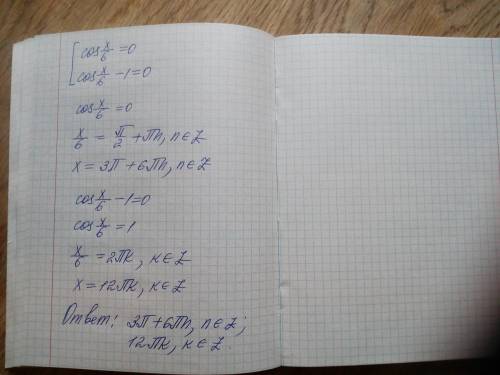 [cos x/6 = 0
cos x/6 - 1 = 0
cos x/6 = 0
x/6 = π/2 + πn, n ∈ Z
x = 3π + 6πn, n ∈ Z
cos x/6 - 1 = 0
cos x/6 = 1
x/6 = 2πк, к ∈ Z
x = 12πк, к ∈ Z
Ответ: 3π + 6πn, n ∈ Z;
12πк, к ∈ Z.